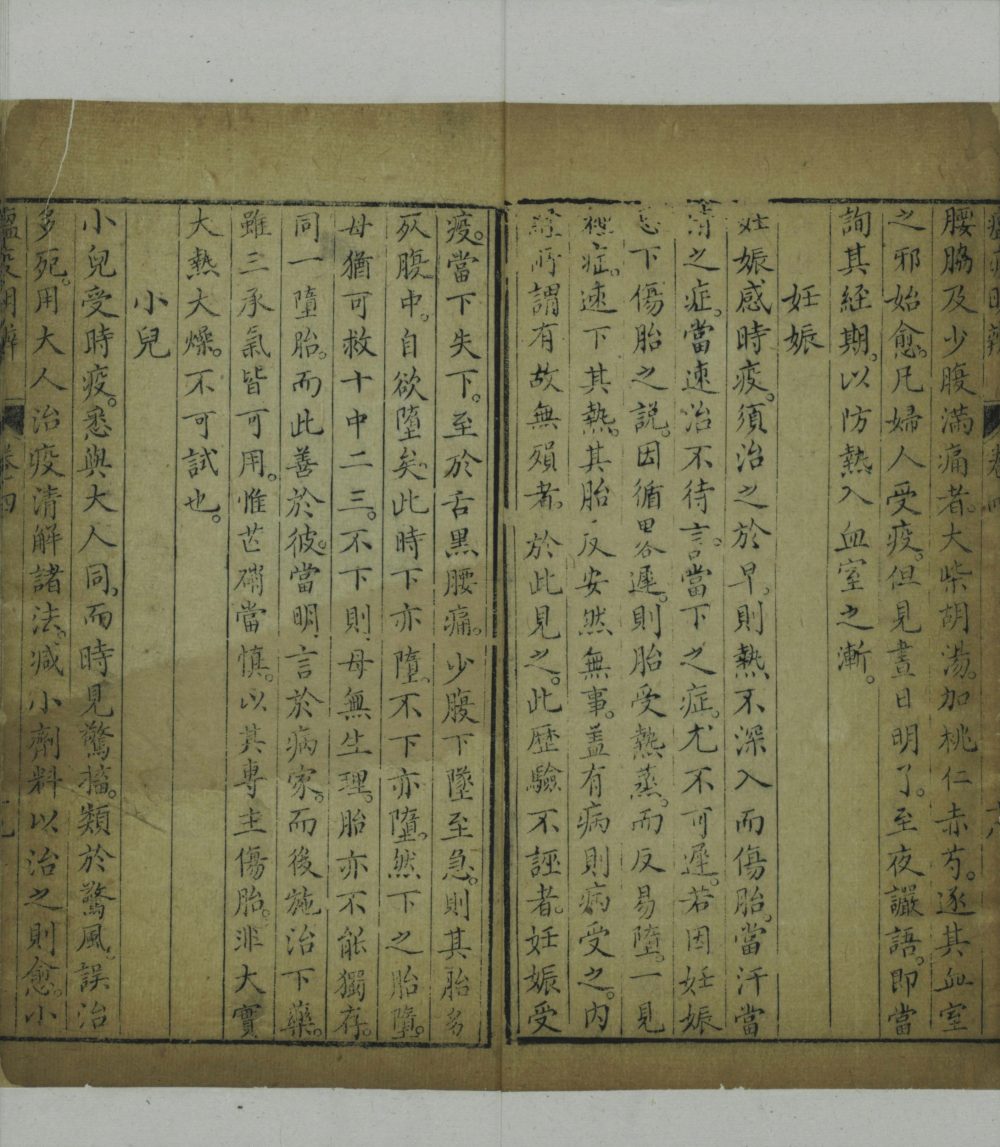 腰脇及少腹滿痛者。大柴胡湯。加桃仁赤芍。逐其血室
之邪始愈。凡婦人受疫。但見晝日明了。至夜讝語。即當
詢其経期。以防熱入血室之漸。
妊娠
妊娠感時疫。須治之於早。則熱不深入而傷胎。當汗當
清之症。當速治不待言。當下之症。尤不可遲。若因妊娠
忌下傷胎之説。因循遲。則胎受熱蒸。而反易墮。一見
裡症。速下其熱。其胎反安然無事。蓋有病則病受之。內
經所謂有故無殞者。於此見之。此歷驗不誣者。妊娠受
疫。當下失下。至於舌黑腰痛。少腹下墜至急。則其胎多
死腹中。自欲墮矣。此時下亦墮。不下亦墮。然下之胎墮。
母猶可救十中二三。不下則母無生理。胎亦不能獨存。
同一墮胎。而此善於彼。當明言於病家。而後施治下藥。
雖三承氣皆可用。惟芒硝當慎。以其專主傷胎。非大實
大熱大燥。不可試也。
小兒
小兒受時疫。悉與大人同。而時見驚搐。類於驚風。誤治
多死。用大人治疫清解諸法。減小劑料以治之則愈。小
卷四